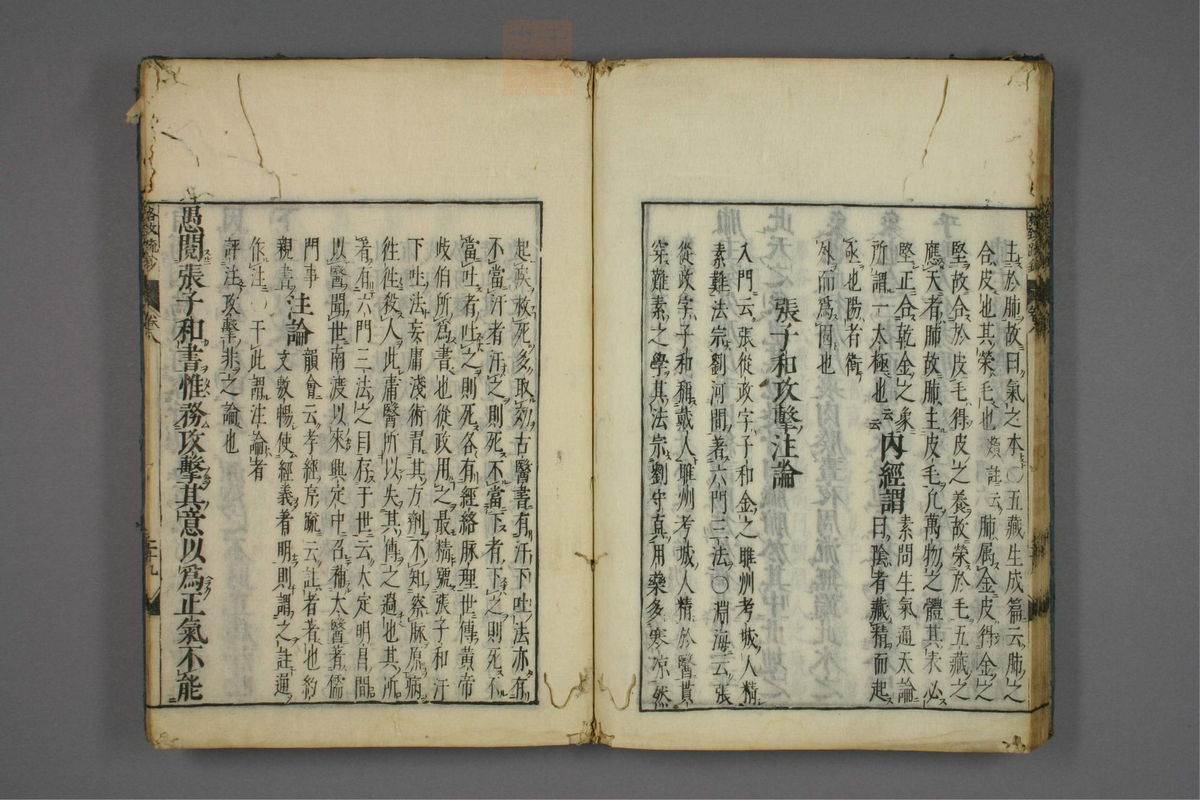 土於肺故曰氣之本〇五藏生成篇云肺之
合皮也其榮毛也 類註云肺屬金皮得金之
堅故合於皮毛得皮之養故榮於毛五藏之
應天者肺故肺主皮毛九萬物之體其表必
堅正合乾金之象 素問生氣通天論
所謂一太極也云云 內經謂 曰陰者藏精而起
亟也陽者衛
外而爲固也
張子和攻擊注論
入門云張從政字子和金之睢州考城人精
素難法宗劉河間著六門三法〇淵海云張
從政字子和稱戴人睢州考城人精於醫貫
穿難素之學其法宗劉守真用藥多寒凉然
起疾救死多取効古醫書有汗下吐法亦有
不當汗者汗之則死不當下者下之則死不
當吐者吐之則死各有經絡脉理世傳黃帝
岐伯所爲書也從政用之最精號張子和汗
下吐法妄庸淺術習其方劑不知察脉原病
往往殺人此庸醫所以失其傳之過也其所
著有六門三法之目存于世云大定明昌間
以醫聞世南渡以來興定中召補太醫著儒
門事 注論 韻會云孝經序疏云註者著也約
親書 文敷暢使經義著明則謂之註通
作注 于此謂注論者
評注攻擊非之論也
愚閱張子和書惟務攻擊其意以爲正氣不能